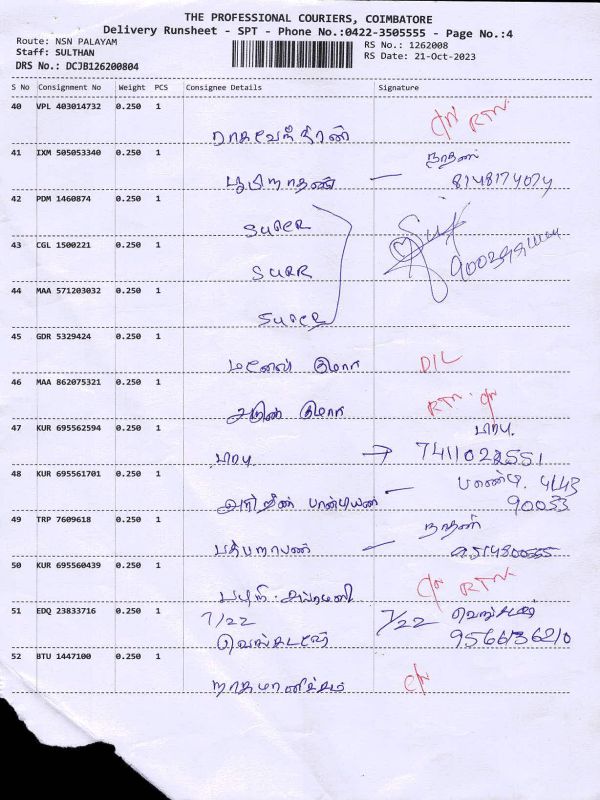 THE PROFESSIONAL COURIERS, COIMBATORE
Delivery Runsheet - SPT - Phone No.:0422-3505555 - Page No.:4
Route: NSN PALAYAM
Staff: SULTHAN
DRS No.: DCJB126200804
RS No.: 1262008
RS Date: 21-Oct-2023
S No Consignment No Weight PCS Consignee Details Signature
40 VPL 403014732 0.250 1
ராகவேந்திரன் RTN
41 IXM 505053340 0.250 1 நாதன்
8148174074
42 PDM 1460874 0.250 1
SUPER
43 CGL 1500221 0.250 1
SUPR
44 MAA 571203032 0.250 1
SUPER
45 GDR 5329424 0.250 1
குமார் D/L
46 MAA 862075321 0.250 1
அருண் குமார் RTN
47 KUR 695562594 0.250 1 பாபு.
பாபு. → 7411022551
48 KUR 695561701 0.250 1
பாண்டியன் 90033
49 TRP 7609618 0.250 1 நாதன்
50 KUR 695560439 0.250 1
RTN
51 EDQ 23833716 0.250 1
7/22 7/22
வெங்கடேஷ் 9566136210
52 BTU 1447100 0.250 1
நாகமாணிக்கம்